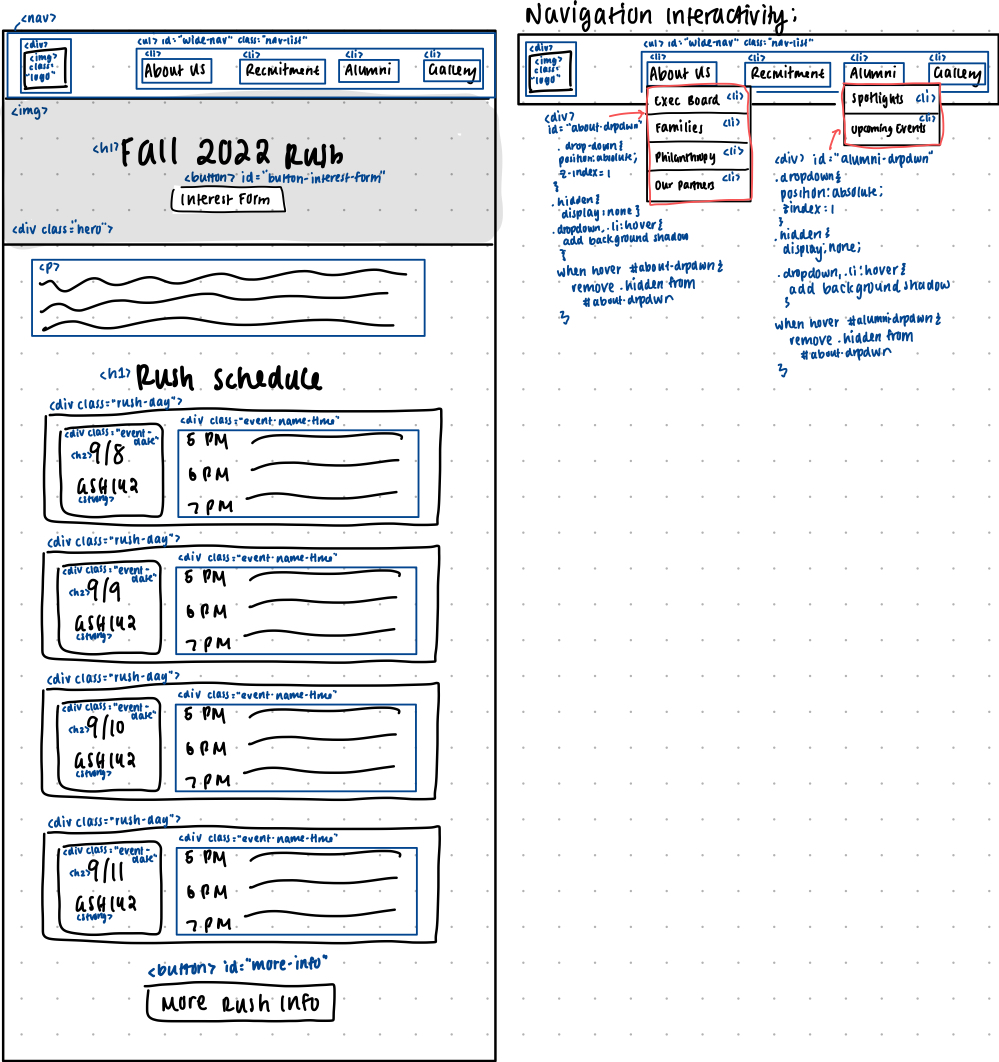 <nav>
<div>
<img>
class=
"logo"
<ul> id="wide-nav" class="nav-list"
<li> <li> <li> <li>
About Us Recruitment Alumni Gallery
<img>
<h1> Fall 2022 Rush
<button> id="button-interest-form"
Interest Form
<div class="hero">
<p>
<h1> Rush Schedule
<div class="rush-day">
<div class="event-
date"
<h2> 9/8
ASH142
<strong>
<div class="event-name-time"
5 PM
6 PM
7 PM
<div class="rush-day">
<div class="event-
date"
<h2> 9/9
ASH142
<strong>
<div class="event-name-time"
5 PM
6 PM
7 PM
<div class="rush-day">
<div class="event-
date"
<h2> 9/10
ASH142
<strong>
<div class="event-name-time"
5 PM
6 PM
7 PM
<div class="rush-day">
<div class="event-
date"
<h2> 9/11
ASH142
<strong>
<div class="event-name-time"
5 PM
6 PM
7 PM
<button> id="more-info"
More Rush Info
Navigation Interactivity:
<div>
<img>
class=
"logo"
<ul> id="wide-nav" class="nav-list"
<li> <li> <li> <li>
About Us Recruitment Alumni Gallery
Exec Board <li>
Families <li>
Philanthropy <li>
Our Partners <li>
Spotlights <li>
Upcoming Events <li>
<div>
id="about-drpdwn"
.drop-down{
position:absolute;
z-index=1
}
.hidden{
display:none}
.dropdown, .li:hover{
add background shadow
}
when hover #about-drpdwn{
remove .hidden from
#about-drpdwn
}
<div> id="alumni-drpdwn"
.dropdown{
position:absolute;
zindex=1
}
.hidden{
display:none;
.dropdown, .li:hover{
add background shadow
}
when hover #alumni-drpdwn{
remove .hidden from
#about-drpdwn
}